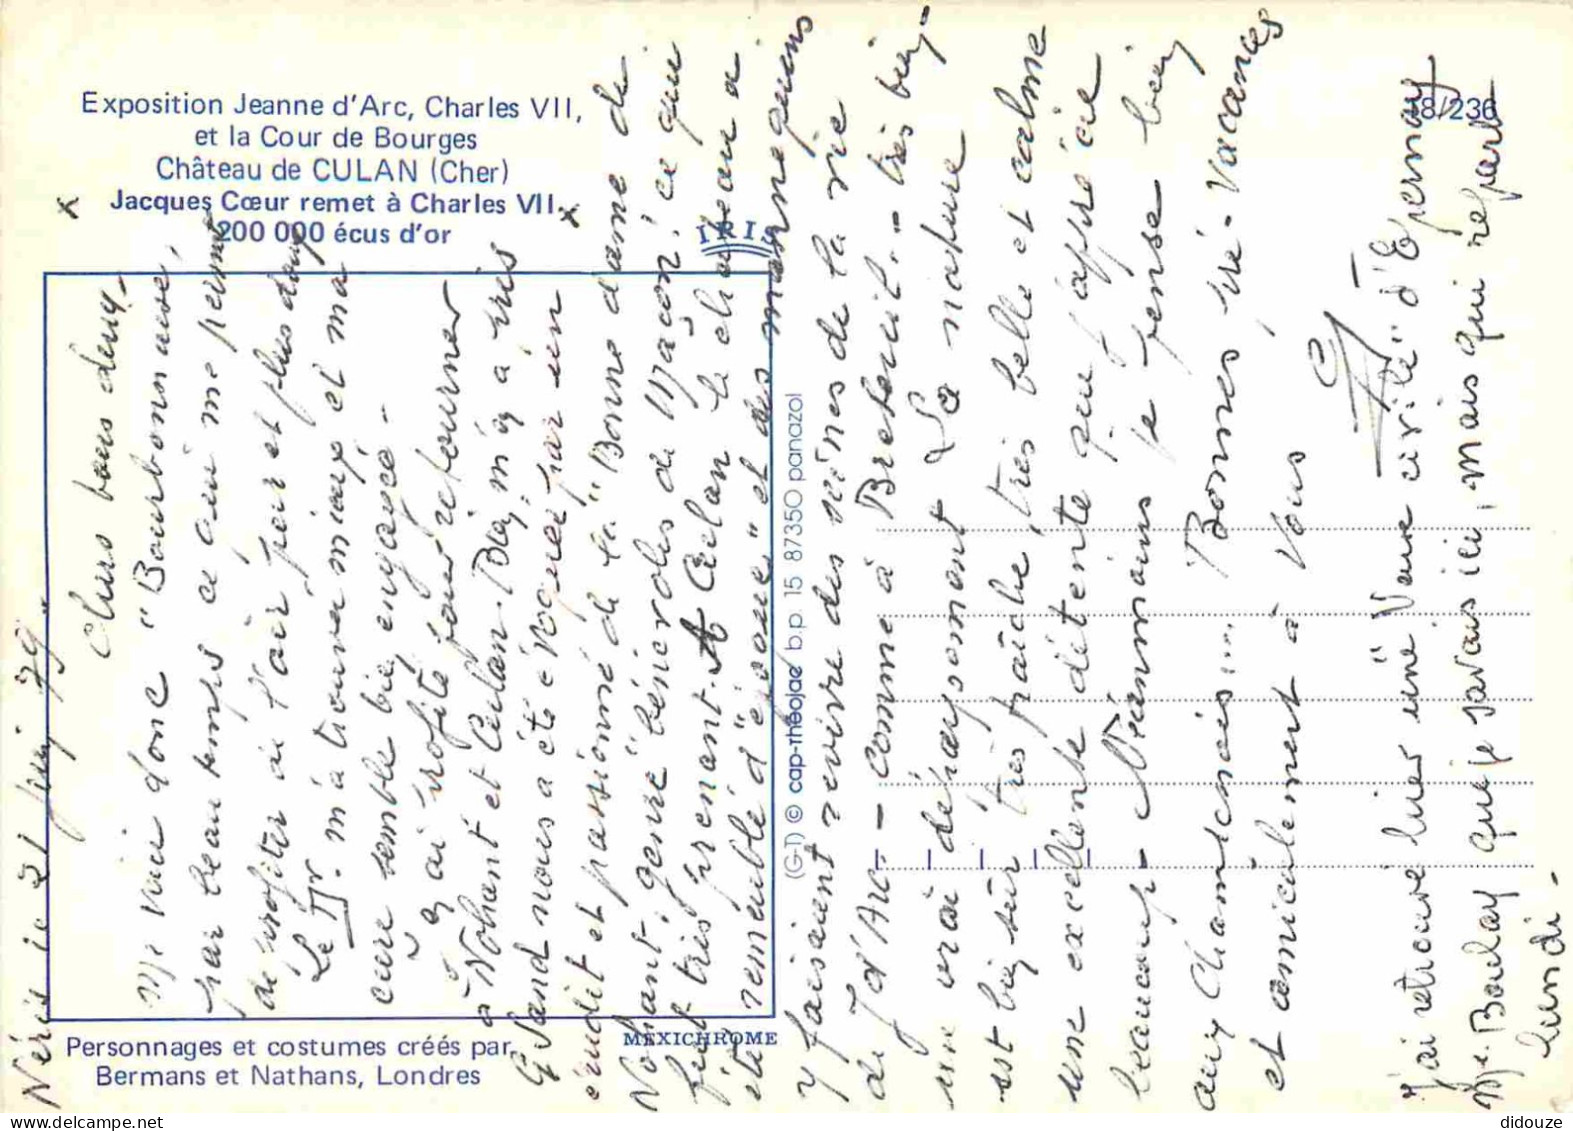 Exposition Jeanne d'Arc, Charles VII,
et la Cour de Bourges
Château de CULAN (Cher)
Jacques Cœur remet à Charles VII
200 000 écus d'or
IRIS
18/236
Personnages et costumes créés par
Bermans et Nathans, Londres
MEXICHROME
(G-1) © cap-théojac b.p. 15 87350 panazol
Néris le 21 Juin 79
Chers vous deux,
Me voici donc "Bourbonnaise",
par beau temps ce qui me permet
de profiter de l'air pur et plus doux
Le Dr. m'a trouvée mieux et ma
cure semble bien engagée -
J'y ai profité pour retourner
à Nohant et Culan. Déjà
G Sand nous a été évoquée par un
érudit et passionné de la "Bonne dame de
Nohant", genre bénévoles de Mâcon! ce qui
fut très prenant. A Culan le château a
été remeublé d'"époque" et des mannequins
y faisaient revivre des scènes de la vie
de J d'Arc - comme à Breteuil. - très bien -
une vraie La nature
est bien sûr très fraîche, très belle et calme
une excellente détente que j'apprécie
beaucoup - Néanmoins je pense bien
aux Chamicinois.... Bonnes pré-vacances
et amicalement à Vous
J'ai retrouvé hier une "Vane civile" d'Epernay
Me Boulay que je savais ici, mais qui repart
lundi.
didouze